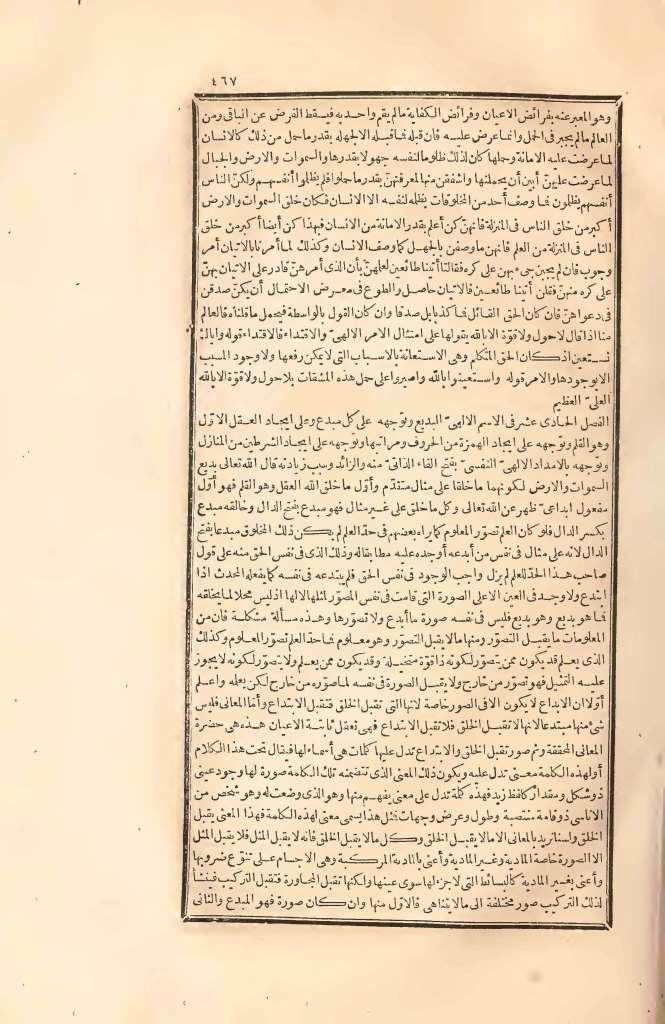 ٤٦٧
وهو المعبر عنه بفرائض الاعيان وفرائض الكفاية مالم يقم واحد به فيسقط الفرض عن الباقى ومن
العالم مالم يجبر فى الحمل وانما عرض عليه فان قبله فما قبله الا لجهله بقدر ما حمل من ذلك كالانسان
لما عرضت عليه الامانة وحملها كان لذلك ظلوما لنفسه جهولا بقدرها والسموات والارض والجبال
لما عرضت عليهنّ أبين أن يحملنها وأشفقن منها لمعرفتهنّ بقدر ما حملوا فلم يظلموا أنفسهم ولكنّ الناس
أنفسهم يظلمون فما وصف أحد من المخلوقات بظلمه لنفسه الا الانسان فكان خلق السموات والارض
أكبر من خلق الناس فى المنزلة فانهنّ كنّ أعلم بقدر الامانة من الانسان فبهذا كنّ أيضا أكبر من خلق
الناس فى المنزلة من العلم فانهن ما وصفن بالجهل كما وصف الانسان وكذلك لما أمرنا بالاتيان أمر
وجوب فان لم يجبن جىء بهن على كره فقالتا أتينا طائعين لعلمهنّ بأن الذى أمرهنّ قادر على الاتيان بهنّ
على كره منهنّ فقلن أتينا طائعين فالاتيان حاصل والطوع فى معرض الاحتمال أن يكنّ صدقن
فى دعواهنّ فان كان الحق القائل فما كذبا بل صدقا وان كان القول بالواسطة فيحمل ما قلناه فالعالم
منا اذا قال لا حول ولا قوّة الا بالله يقولها على امتثال الامر الالهىّ والاقتداء فالاقتداء قوله واياك
نستعين اذ كان الحق المتكلم وهى الاستعانة بالاسباب التى لا يمكن رفعها ولا وجود المسبب
الا بوجودها والامر قوله واستعينوا بالله واصبروا على حمل هذه المشقات بلا حول ولا قوّة الا بالله
العلىّ العظيم
الفصل الحادى عشر فى الاسم الالهىّ البديع وتوجهه على كل مبدع وعلى ايجاد العقل الاوّل
وهو القلم وتوجهه على ايجاد الهمزة من الحروف ومراتبها وتوجهه على ايجاد الشرطين من المنازل
وتوجهه بالامداد الالهىّ النفسىّ بفتح الفاء الذاتىّ منه والزائد وسبب زيادته قال الله تعالى بديع
السموات والارض لكونهما ما خلقا على مثال متقدّم وأوّل ما خلق الله العقل وهو القلم فهو أوّل
مفعول ابداعىّ ظهر عن الله تعالى وكل ما خلق على غير مثال فهو مبدع بفتح الدال وخالقه مبدع
بكسر الدال فلو كان العلم تصوّر المعلوم كما يراه بعضهم فى حدّ العلم لم يكن ذلك المخلوق مبدعا بفتح
الدال لانه على مثال فى نفس من أبدعه أوجده عليه مطابقا له وذلك الذى فى نفس الحق منه على قول
صاحب هذا الحدّ للعلم لم يزل واجب الوجود فى نفس الحق فلم يبتدعه فى نفسه كما يفعله المحدث اذا
ابتدع ولا وجد فى العين الا على الصورة التى قامت فى نفس المصوّر لمثلها لا لها اذ ليس محلا لما يخلقه
فما هو بديع وهو بديع فليس فى نفسه صورة ما أبدع ولا تصوّرها وهذه مسألة مشكلة فان من
المعلومات ما يقبل التصوّر ومنها مالا يقبل التصوّر وهو معلوم فما حدّ العلم تصوّر المعلوم وكذلك
الذى يعلم قد يكون ممن يتصوّر لكونه ذا قوّة متخيلة وقد يكون ممن يعلم ولا يتصوّر لكونه لا يجوز
عليه التمثيل فهو تصوّر من خارج ولا يقبل الصورة فى نفسه لما صوّره من خارج لكن يعلمه واعلم
أوّلا ان الابداع لا يكون الا فى الصور خاصة لانها التى تقبل الخلق فتقبل الابتداع وأمّا المعانى فليس
شئ منها مبتدعا لانها لا تقبل الخلق فلا تقبل الابتداع فهى تعقل ثابتة الاعيان هذه هى حضرة
المعانى المحققة وثم صور تقبل الخلق والابتداع تدل عليها كلمات هى أسماء لها فيقال تحت هذا الكلام
أو لهذه الكلمة معنى تدل عليه ويكون ذلك المعنى الذى تتضمنه تلك الكلمة صورة لها وجود عينى
ذو شكل ومقدار كلفظ زيد فهذه كلمة تدل على معنى يفهم منها وهو الذى وضعت له وهو شخص من
الاناسى ذو قامة منتصبة وطول وعرض وجهات فمثل هذا يسمى معنى لهذه الكلمة فهذا المعنى يقبل
الخلق ولسنا نريد بالمعانى الا مالا يقبل الخلق وكل مالا يقبل الخلق فانه لا يقبل المثل فلا يقبل المثل
الا الصورة خاصة المادية وغير المادية وأعنى بالمادية المركبة وهى الاجسام على تنوّع ضروبها
وأعنى بغير المادية كالبسائط التى لا جزء لها سوى عينها ولكنها تقبل المجاورة فتقبل التركيب فينشأ
لذلك التركيب صور مختلفة الى مالا يتناهى فالاوّل منها وان كان صورة فهو المبدع والثانى